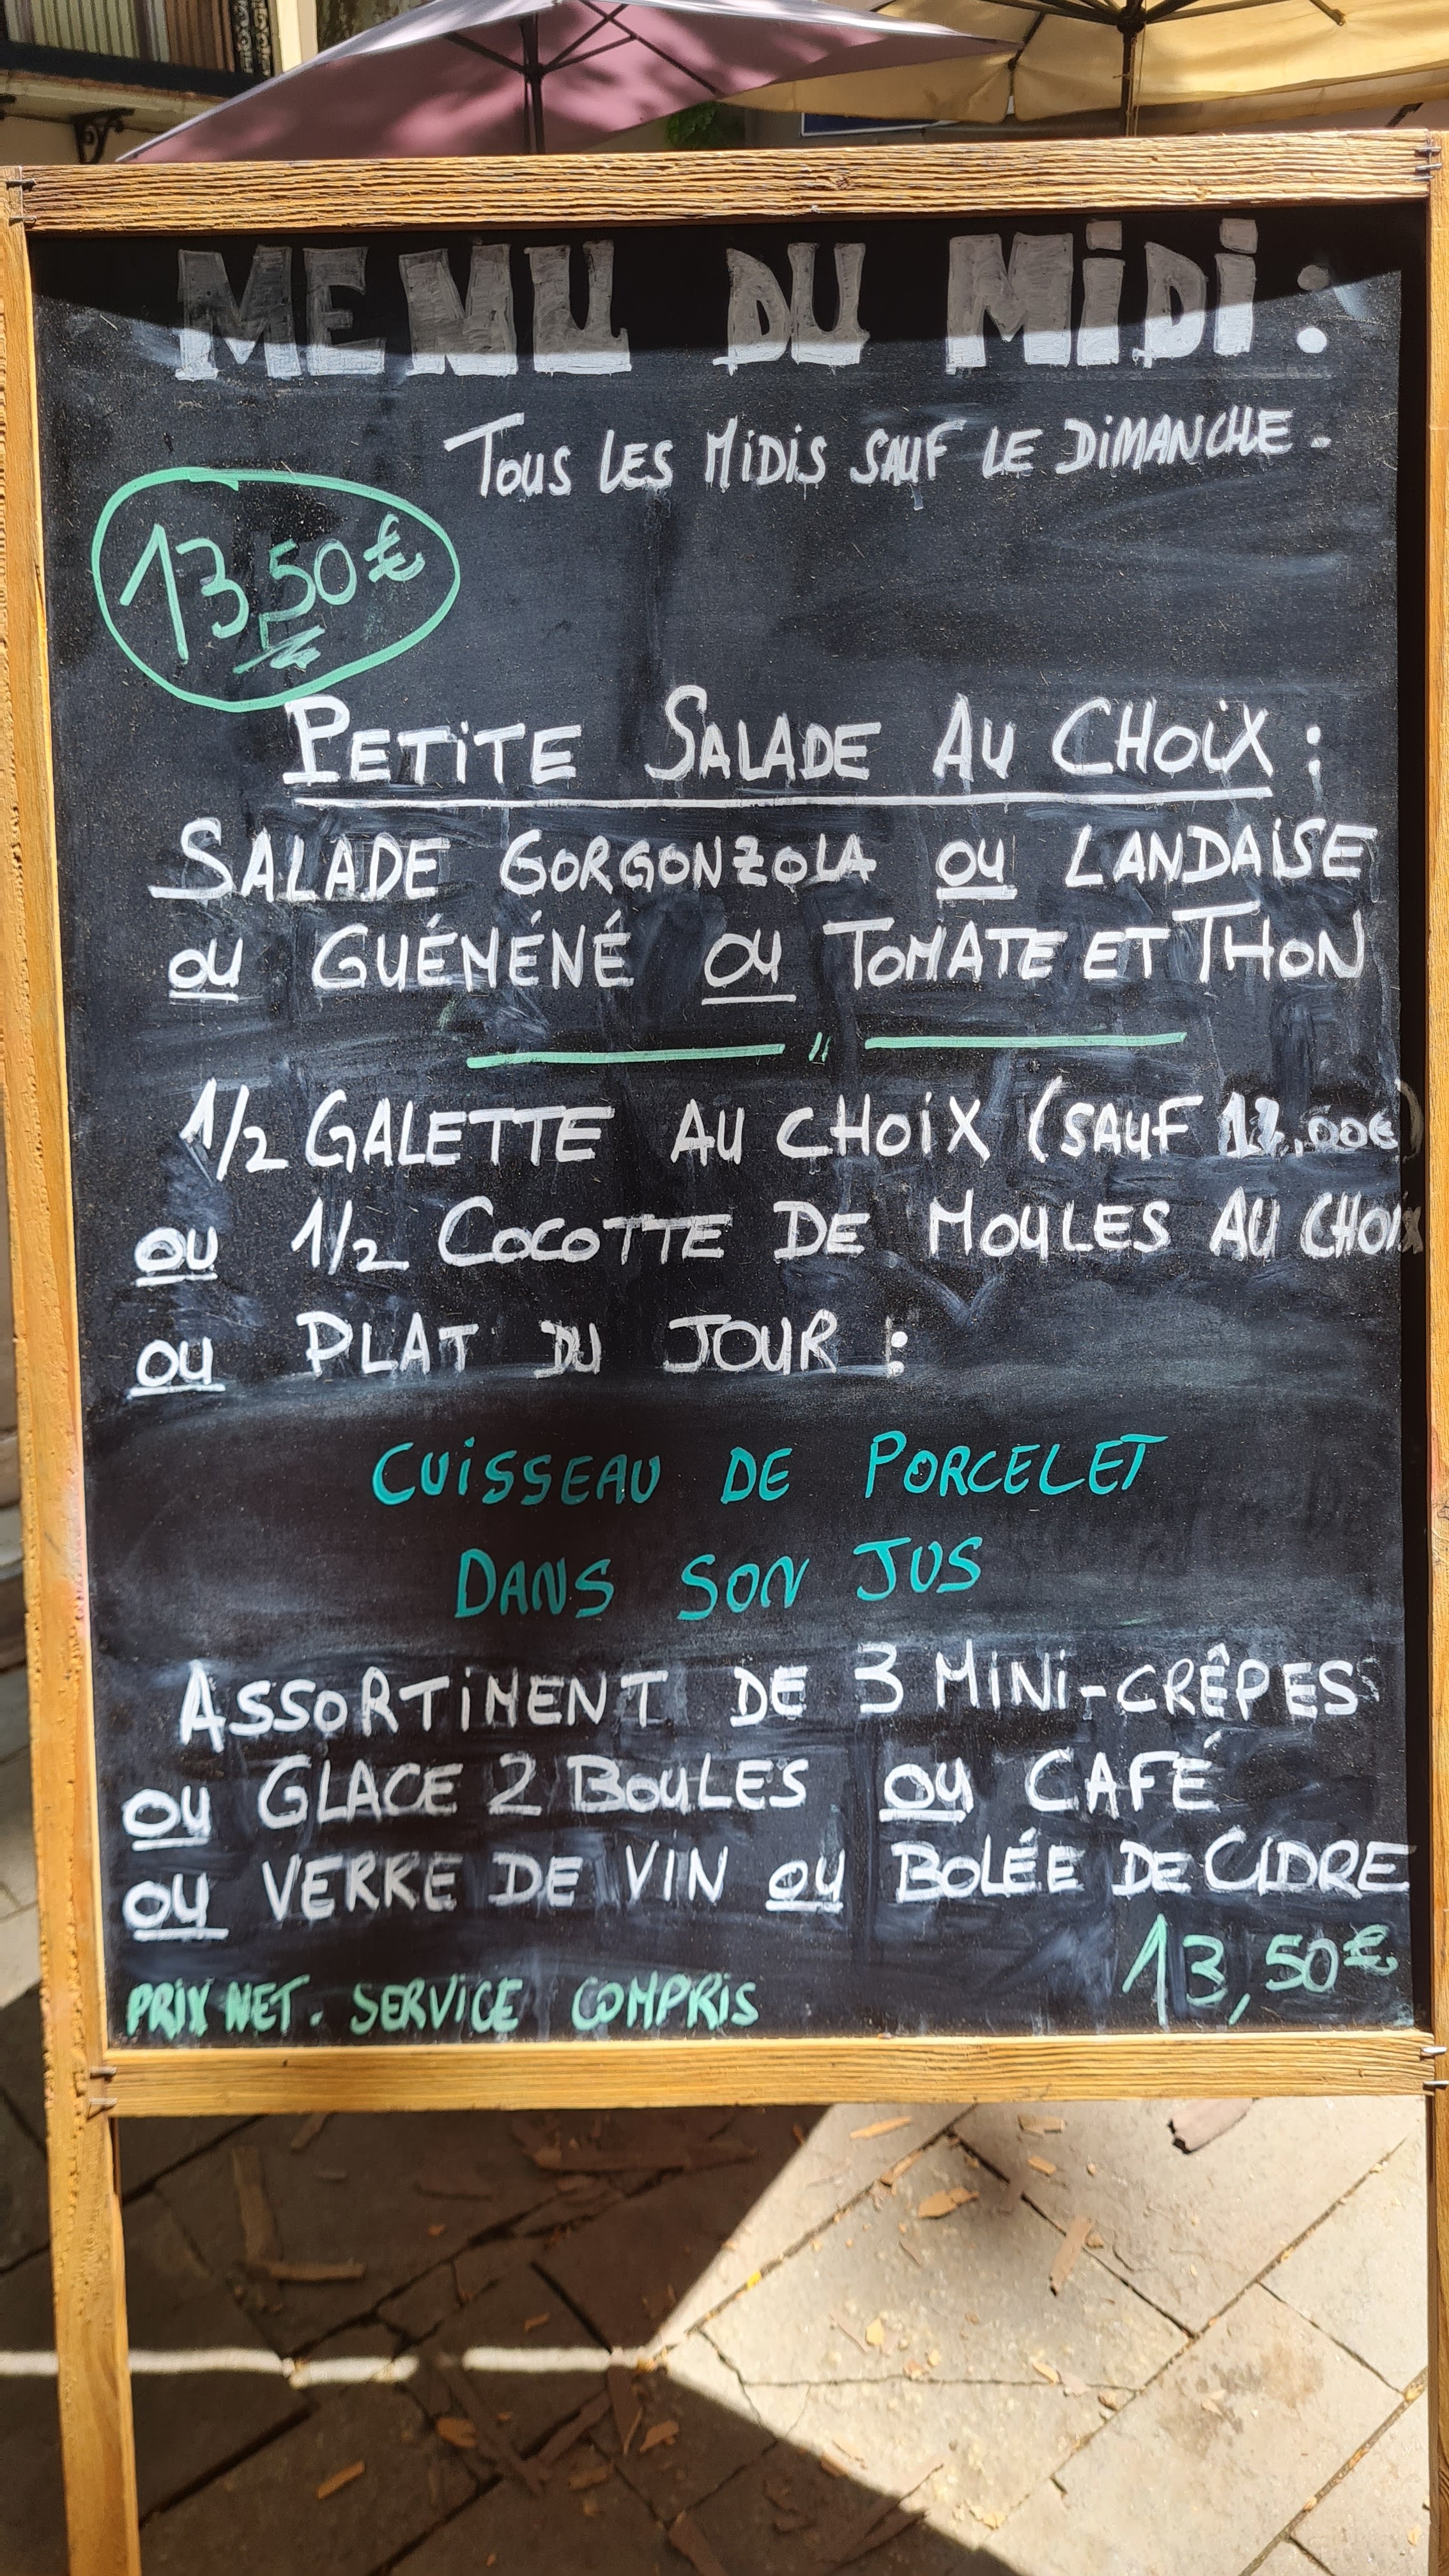 MENU DU MiDi :
TOUS LES MiDiS SAUF LE DiMANCHE.
13,50€
PETiTE SALADE AU CHOiX :
SALADE GORGONZOLA OU LANDAiSE
OU GUÉMÉNÉ OU TOMATE ET THON
1/2 GALETTE AU CHOiX (SAUF ,00€)
OU 1/2 COCOTTE DE MOULES AU CHOIX
OU PLAT DU JOUR :
CUiSSEAU DE PORCELET
DANS SON JUS
ASSORTiMENT DE 3 MiNi-CRÊPES
OU GLACE 2 BOULES OU CAFÉ
OU VERRE DE VIN OU BOLÉE DE CIDRE
13,50€
PRIX NET. SERVICE COMPRiS